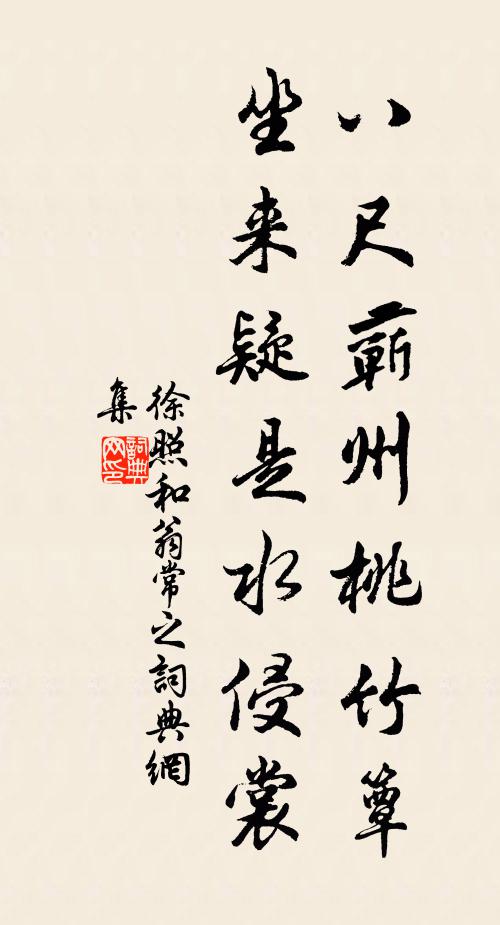 八尺蘄州桃竹簟
坐来疑是水侵裳
徐照和翁常之詞典網
集
詞典网印